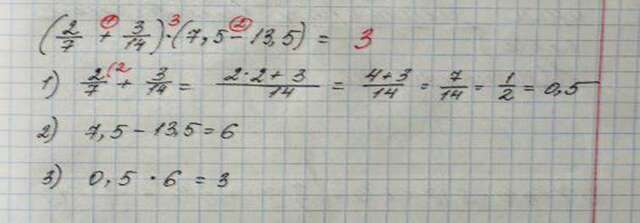 (2/7 ① + 3/14) ·³ (7,5 -② 13,5) = 3
1) 2/7 (2 + 3/14 = 2·2+3/14 = 4+3/14 = 7/14 = 1/2 = 0,5
2) 7,5 - 13,5 = 6
3) 0,5 · 6 = 3